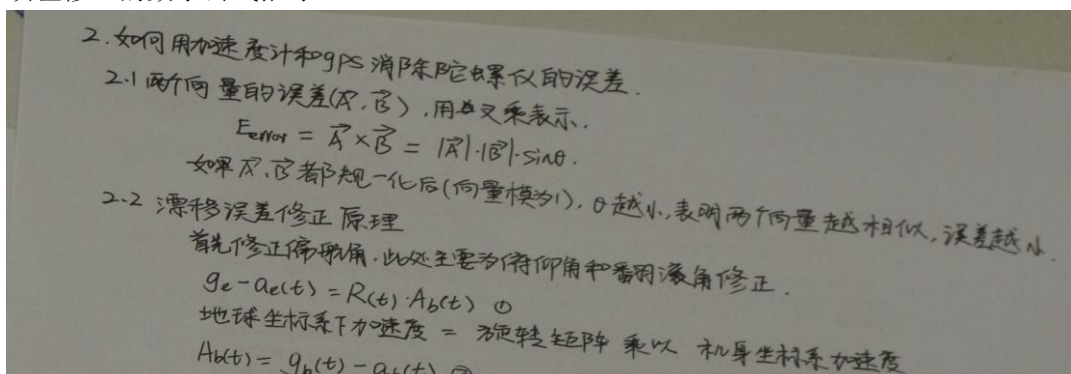 2.如何用加速度计和gps消除陀螺仪的误差.
2.1 两个向量的误差(A,B),用叉乘表示.
Eerror = A×B = |A|·|B|·sinθ.
如果A、B都规一化后(向量模为1),θ越小,表明两个向量越相似,误差越小.
2-2 漂移误差修正原理
首先修正偏航角.此处主要为俯仰角和翻滚角修正.
ge-ae(t) = R(t)·Ab(t) ①
地球坐标系下加速度 = 旋转矩阵 乘以 机身坐标系加速度
Ab(t) = gb(t) - ab(t) ②